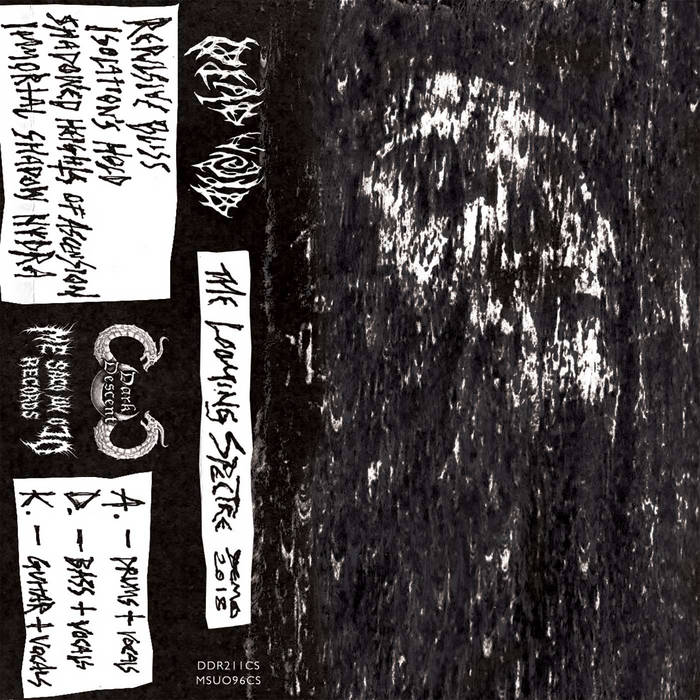 REPULSIVE BLISS
ISOLATIONS HOLD
SHADOWED HEIGHTS OF ASCENSION
IMMORTAL SHADOW HYDRA
DEAD VOID
THE LOOMING SPECTRE DEMO 2018
Dark
Descent
ME SACO UN OJO
RECORDS
A. – DRUMS + VOCALS
D. – BASS + VOCALS
K. – GUITAR + VOCALS
DDR211CS
MSUO96CS